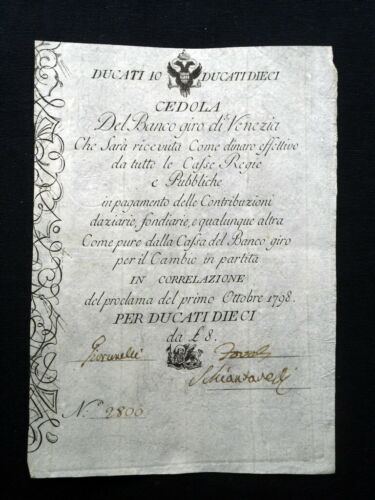 DUCATI 10 DUCATI DIECI
CEDOLA
Del Banco giro di Venezia
Che Sarà ricevuta Come dinaro effettivo
da tutte le Casse Regie
e Pubbliche
in pagamento delle Contribuzioni
daziarie, fondiarie, e qualunque altra
Come pure dalla Cassa del Banco giro
per il Cambio in partita
IN CORRELAZIONE
del proclama del primo Ottobre 1798.
PER DUCATI DIECI
da £ 8.
Schiantarelli
N.o 2806